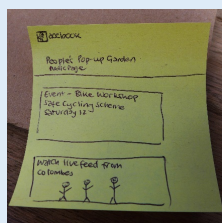 Facebook
People's Pop-up Garden
Public Page
Event - Bike Workshop
Safe Cycling Scheme
Saturday 12
Watch live feed from
colombes